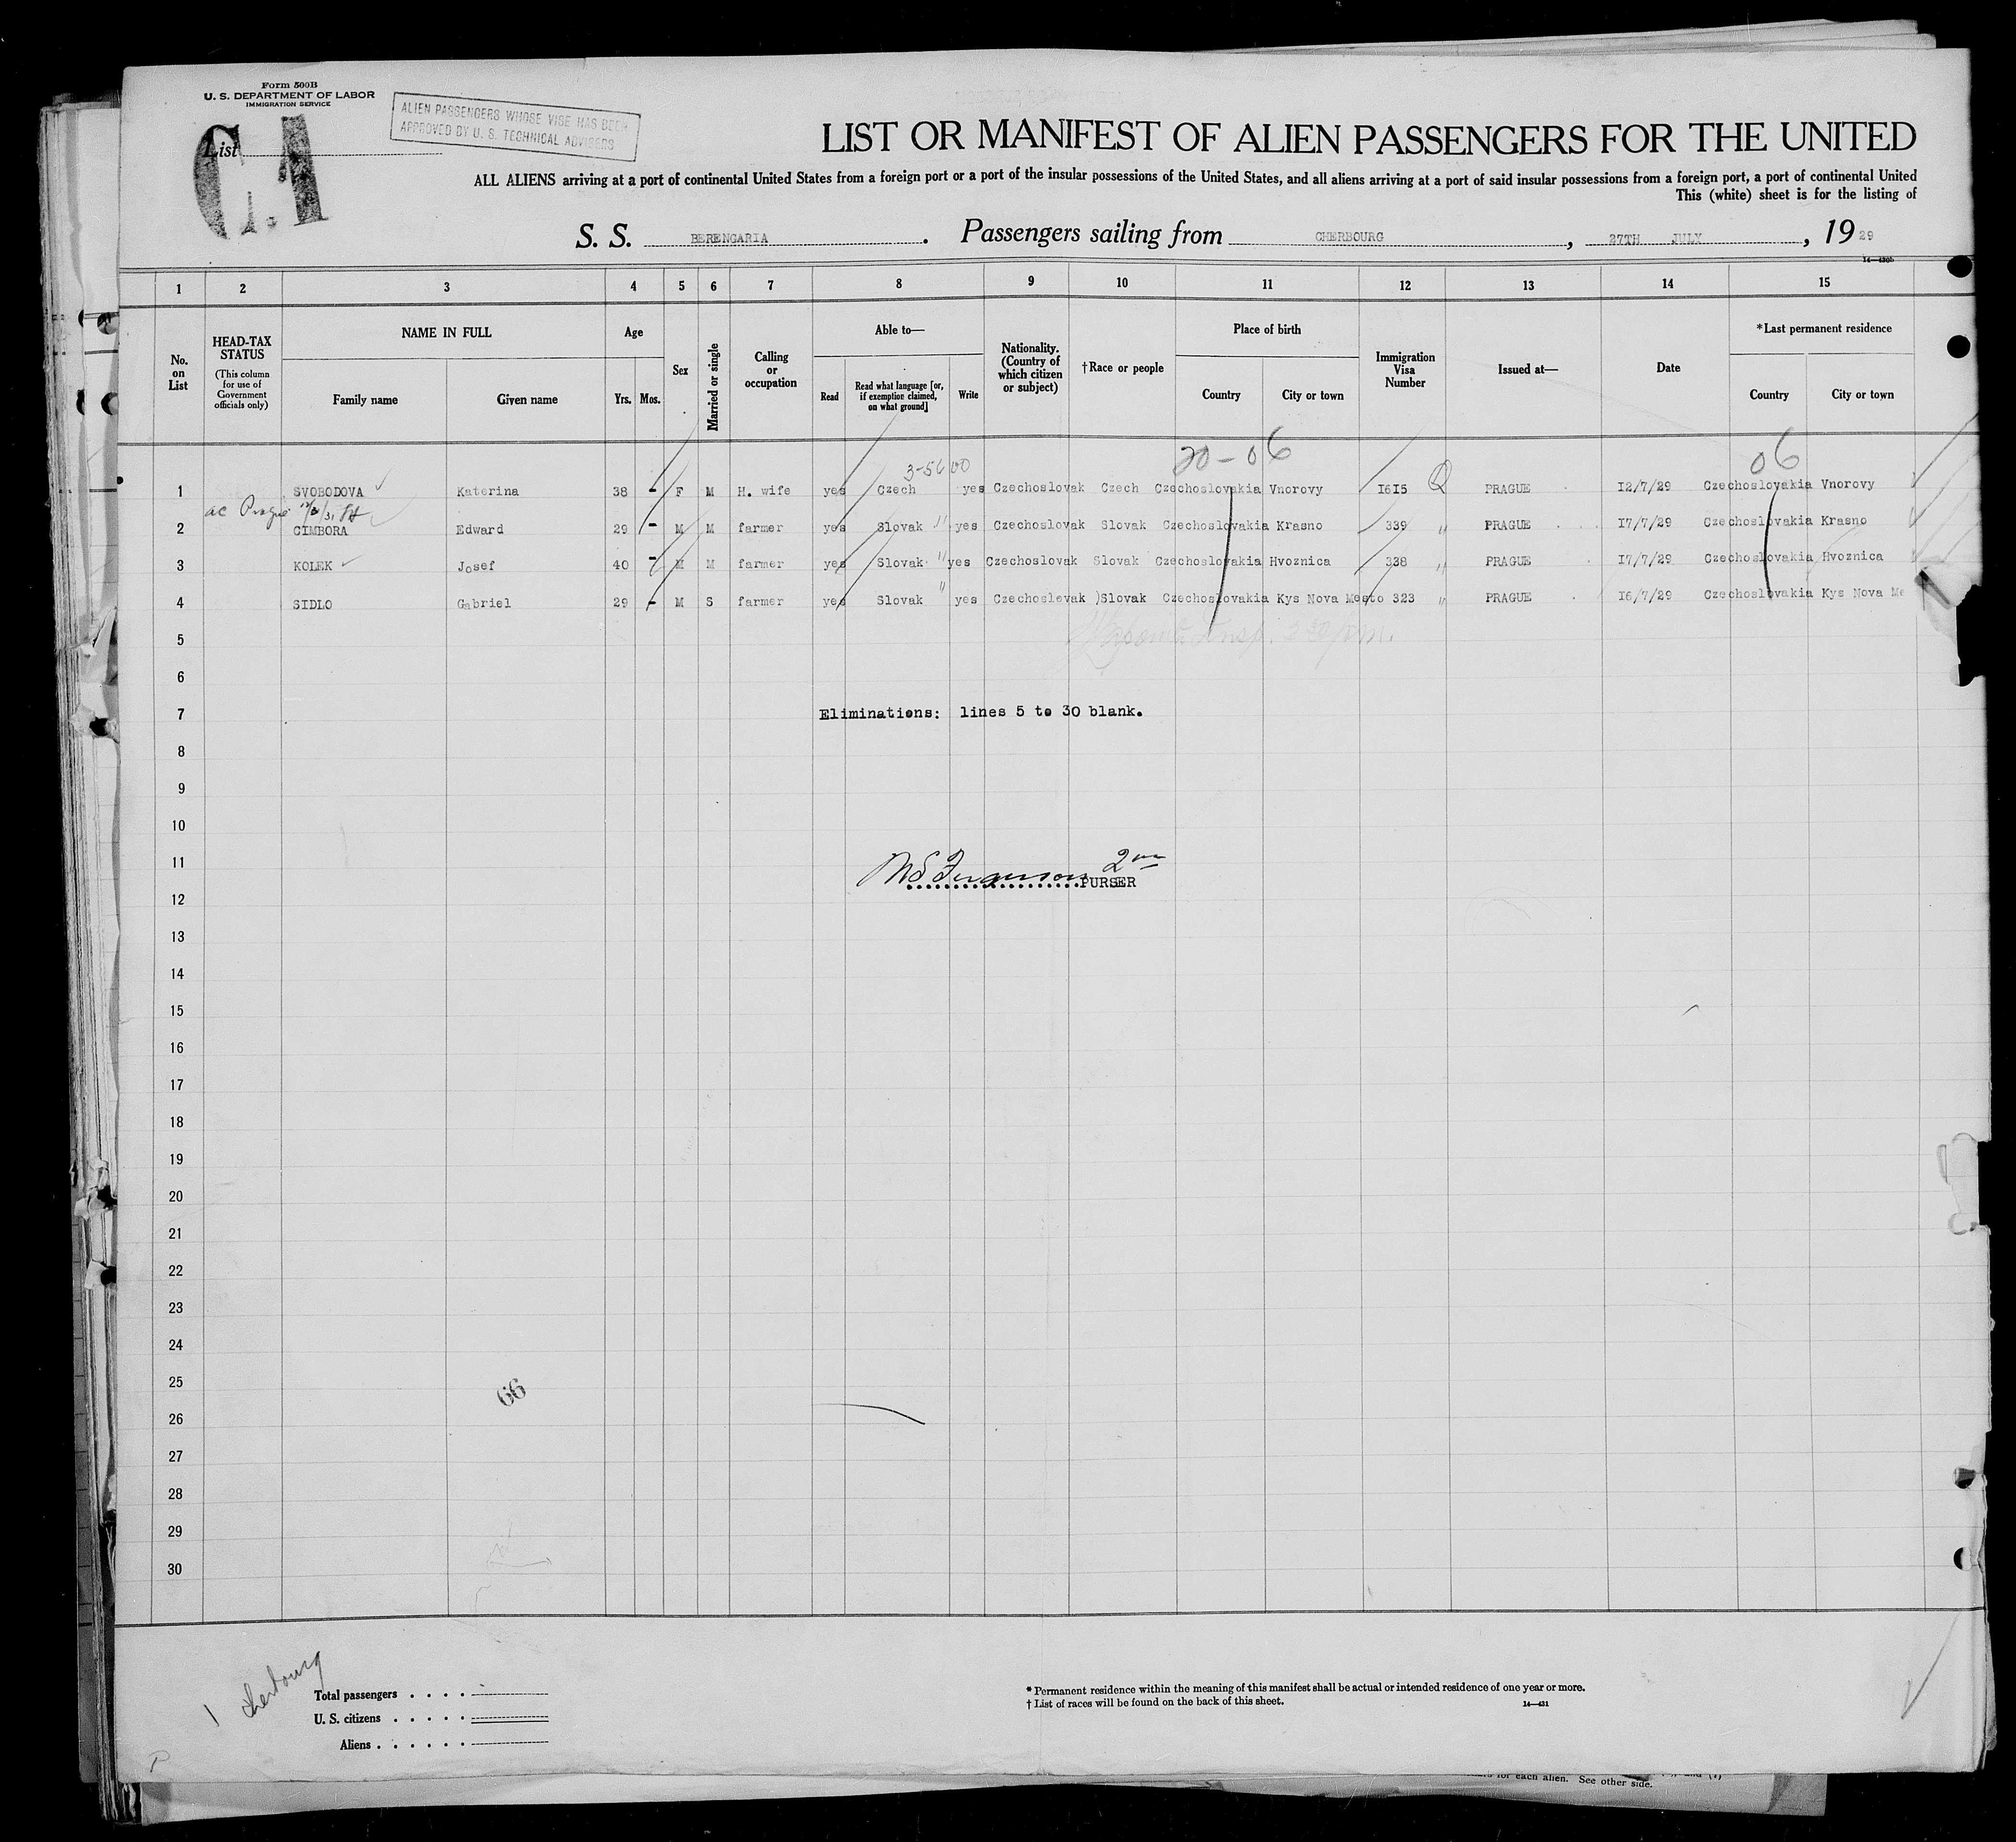 Form 500B
U. S. DEPARTMENT OF LABOR
IMMIGRATION SERVICE
List
ALIEN PASSENGERS WHOSE VISE HAS BEEN
APPROVED BY U. S. TECHNICAL ADVISERS
LIST OR MANIFEST OF ALIEN PASSENGERS FOR THE UNITED
ALL ALIENS arriving at a port of continental United States from a foreign port or a port of the insular possessions of the United States, and all aliens arriving at a port of said insular possessions from a foreign port, a port of continental United
This (white) sheet is for the listing of
S. S. BERENGARIA. Passengers sailing from CHERBOURG, 27TH JULY, 1929
14—430b
1 2 3 4 5 6 7 8 9 10 11 12 13 14 15
No. on List
HEAD-TAX STATUS
(This column for use of Government officials only)
NAME IN FULL
Family name Given name
Age
Yrs. Mos.
Sex
Married or single
Calling or occupation
Able to—
Read
Read what language [or, if exemption claimed, on what ground]
Write
Nationality. (Country of which citizen or subject)
†Race or people
Place of birth
Country City or town
Immigration Visa Number
Issued at—
Date
*Last permanent residence
Country City or town
3-56 00 20-06 06
1 SVOBODOVA Katerina 38 - F M H. wife yes Czech yes Czechoslovak Czech Czechoslovakia Vnorovy 1615 PRAGUE 12/7/29 Czechoslovakia Vnorovy
ac Prague
2 CIMBORA Edward 29 - M M farmer yes Slovak " yes Czechoslovak Slovak Czechoslovakia Krasno 339 " PRAGUE 17/7/29 Czechoslovakia Krasno
3 KOLEK Josef 40 - M M farmer yes Slovak " yes Czechoslovak Slovak Czechoslovakia Hvoznica 338 " PRAGUE 17/7/29 Czechoslovakia Hvoznica
4 SIDLO Gabriel 29 - M S farmer yes Slovak " yes Czechoslovak Slovak Czechoslovakia Kys Nova Mesto 323 " PRAGUE 16/7/29 Czechoslovakia Kys Nova Me
5
6
7 Eliminations: lines 5 to 30 blank.
8
9
10
11
PURSER
12
13
14
15
16
17
18
19
20
21
22
23
24
25
66
26
27
28
29
30
1 Cherbourg
Total passengers
U. S. citizens
Aliens
* Permanent residence within the meaning of this manifest shall be actual or intended residence of one year or more.
† List of races will be found on the back of this sheet.
14—431
P
for each alien. See other side.